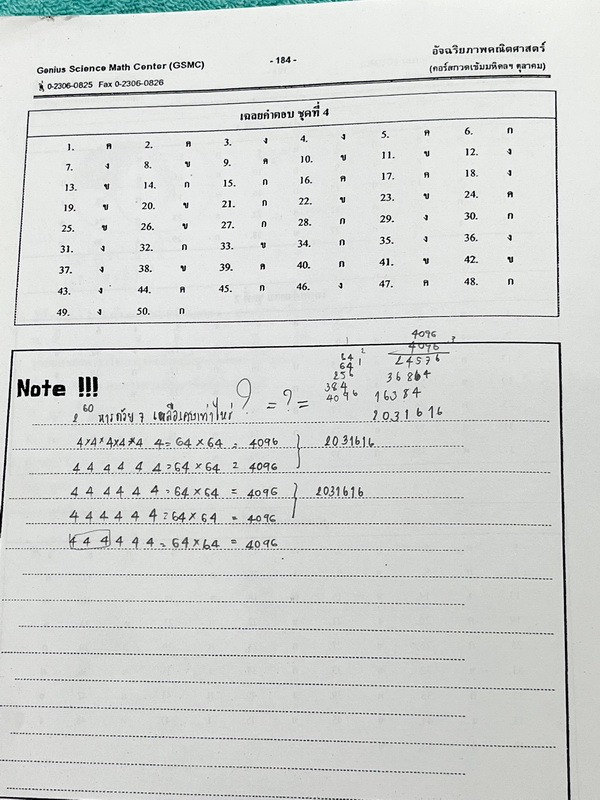 Genius Science Math Center (GSMC)
- 184 -
อัจฉริยภาพคณิตศาสตร์
0-2306-0825 Fax 0-2306-0826
(คอร์สกวดเข้มมหิดลฯ ตุลาคม)
เฉลยคำตอบ ชุดที่ 4
1. ค 2. ค 3. ง 4. ง 5. ค 6. ก
7. ง 8. ข 9. ค 10. ข 11. ข 12. ง
13. ข 14. ก 15. ก 16. ค 17. ค 18. ง
19. ข 20. ข 21. ก 22. ข 23. ข 24. ค
25. ข 26. ข 27. ก 28. ก 29. ง 30. ก
31. ง 32. ก 33. ข 34. ก 35. ง 36. ง
37. ง 38. ข 39. ค 40. ก 41. ข 42. ข
43. ง 44. ค 45. ก 46. ง 47. ค 48. ก
49. ง 50. ก
4096
64 4096
64 24576
256 36864
384 16384
4096 2031616
Note !!!
2^60 หารด้วย 7 เหลือเศษเท่าไหร่ ? = ? =
4×4×4×4×4 4 = 64 × 64 = 4096 2031616
4 4 4 4 4 4 = 64 × 64 = 4096
4 4 4 4 4 4 = 64 × 64 = 4096 2031616
4 4 4 4 4 4 = 64 × 64 = 4096
4 4 4 4 4 4 = 64 × 64 = 4096